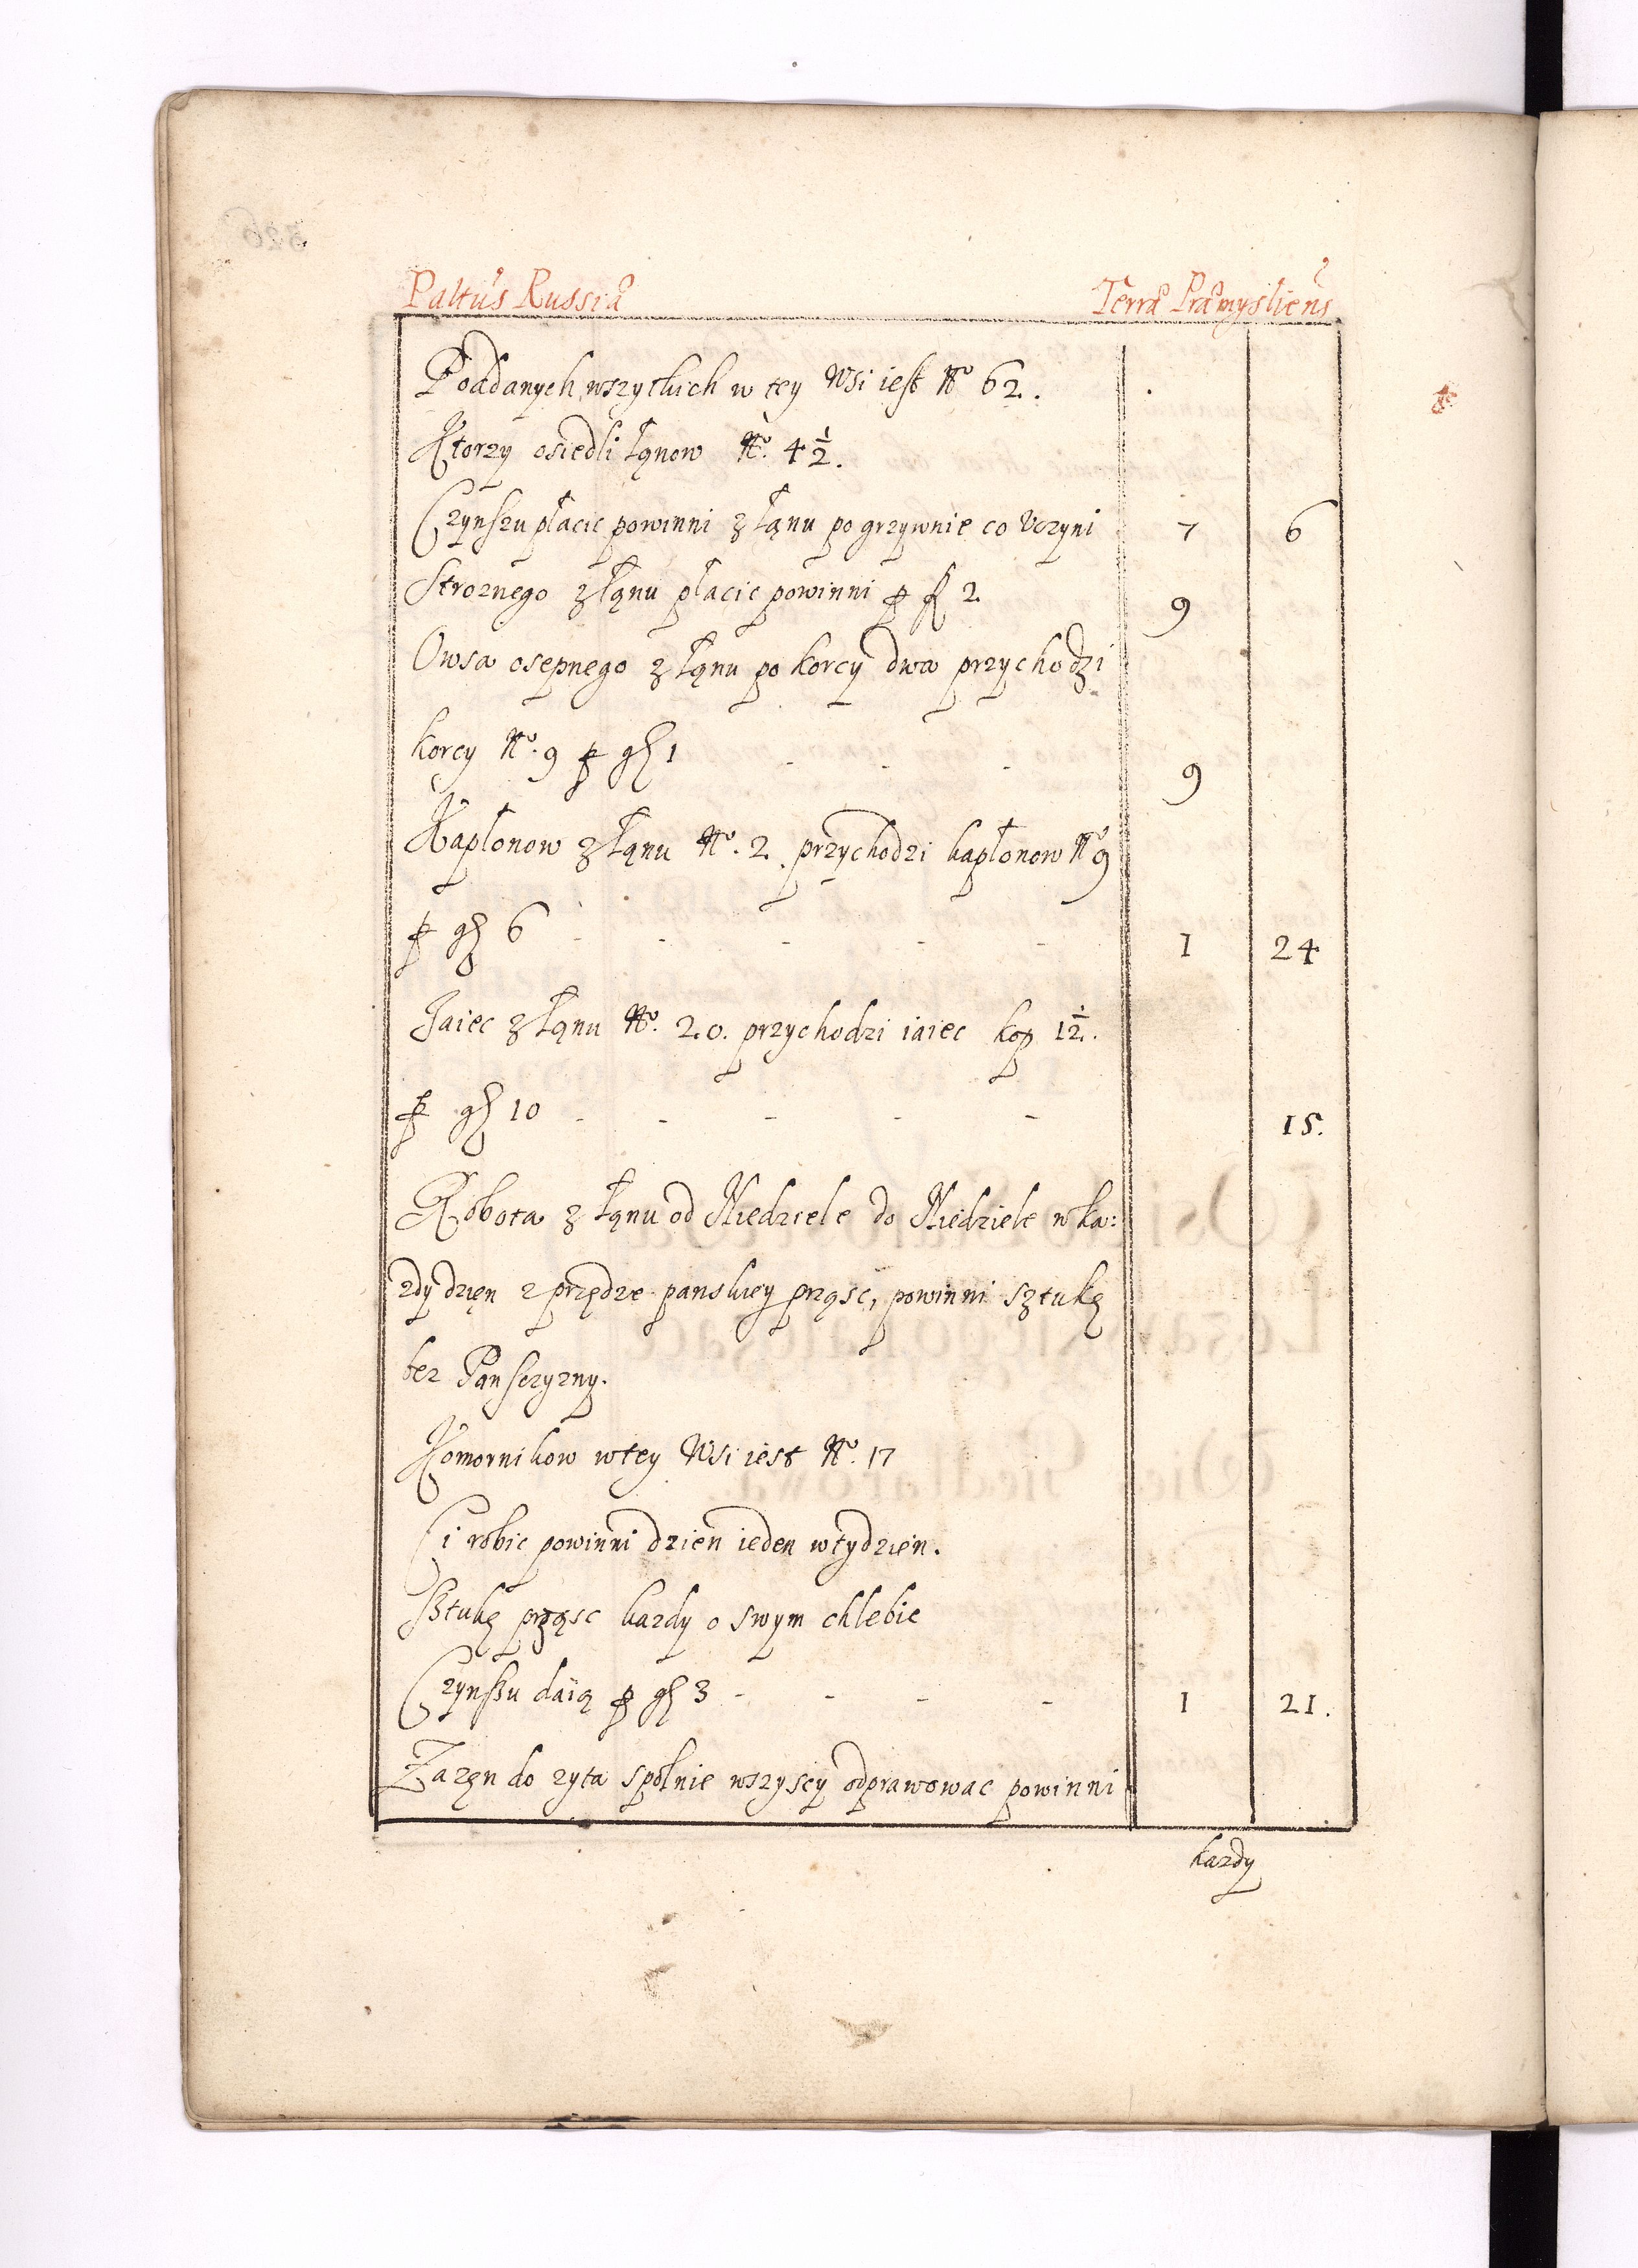 Paltus Russiæ Terræ Præmysliens
Poddanych wszytkich w tey Wsi iest No 62.
Ktorzy osiedli łąnow No. 4 1/2.
Czynszu płacic powinni z łąnu po grzywnie co Vczyni 7 6
Stroznego z łąnu płacic powinni p fl 2 9
Owsa osepnego z łąnu po korcy dwa przychodzi
korcy No. 9 p gr 1 - - - 9
Kapłonow z łąnu No. 2. przychodzi kapłonow No 9
p gr 6 - - - - - 1 24
Jaiec z łąnu No. 20. przychodzi iaiec kop 1 1/2.
p gr 10 - - - - - 15.
Robota z łąnu od Niedziele do Niedziele w ka:
zdy dzięn z przędze panskiey prząsc, powinni sztukę
bez Panszczyzny.
Komornikow w tey Wsi iest No. 17
Ci robic powinni dzien ieden w tydzien.
Sztukę prząsc kazdy o swym chlebie
Czynszu daią p gr 3 - - - - 1 21.
Zazęn do zyta spolnie wszyscy odprawowac powinni
kazdy